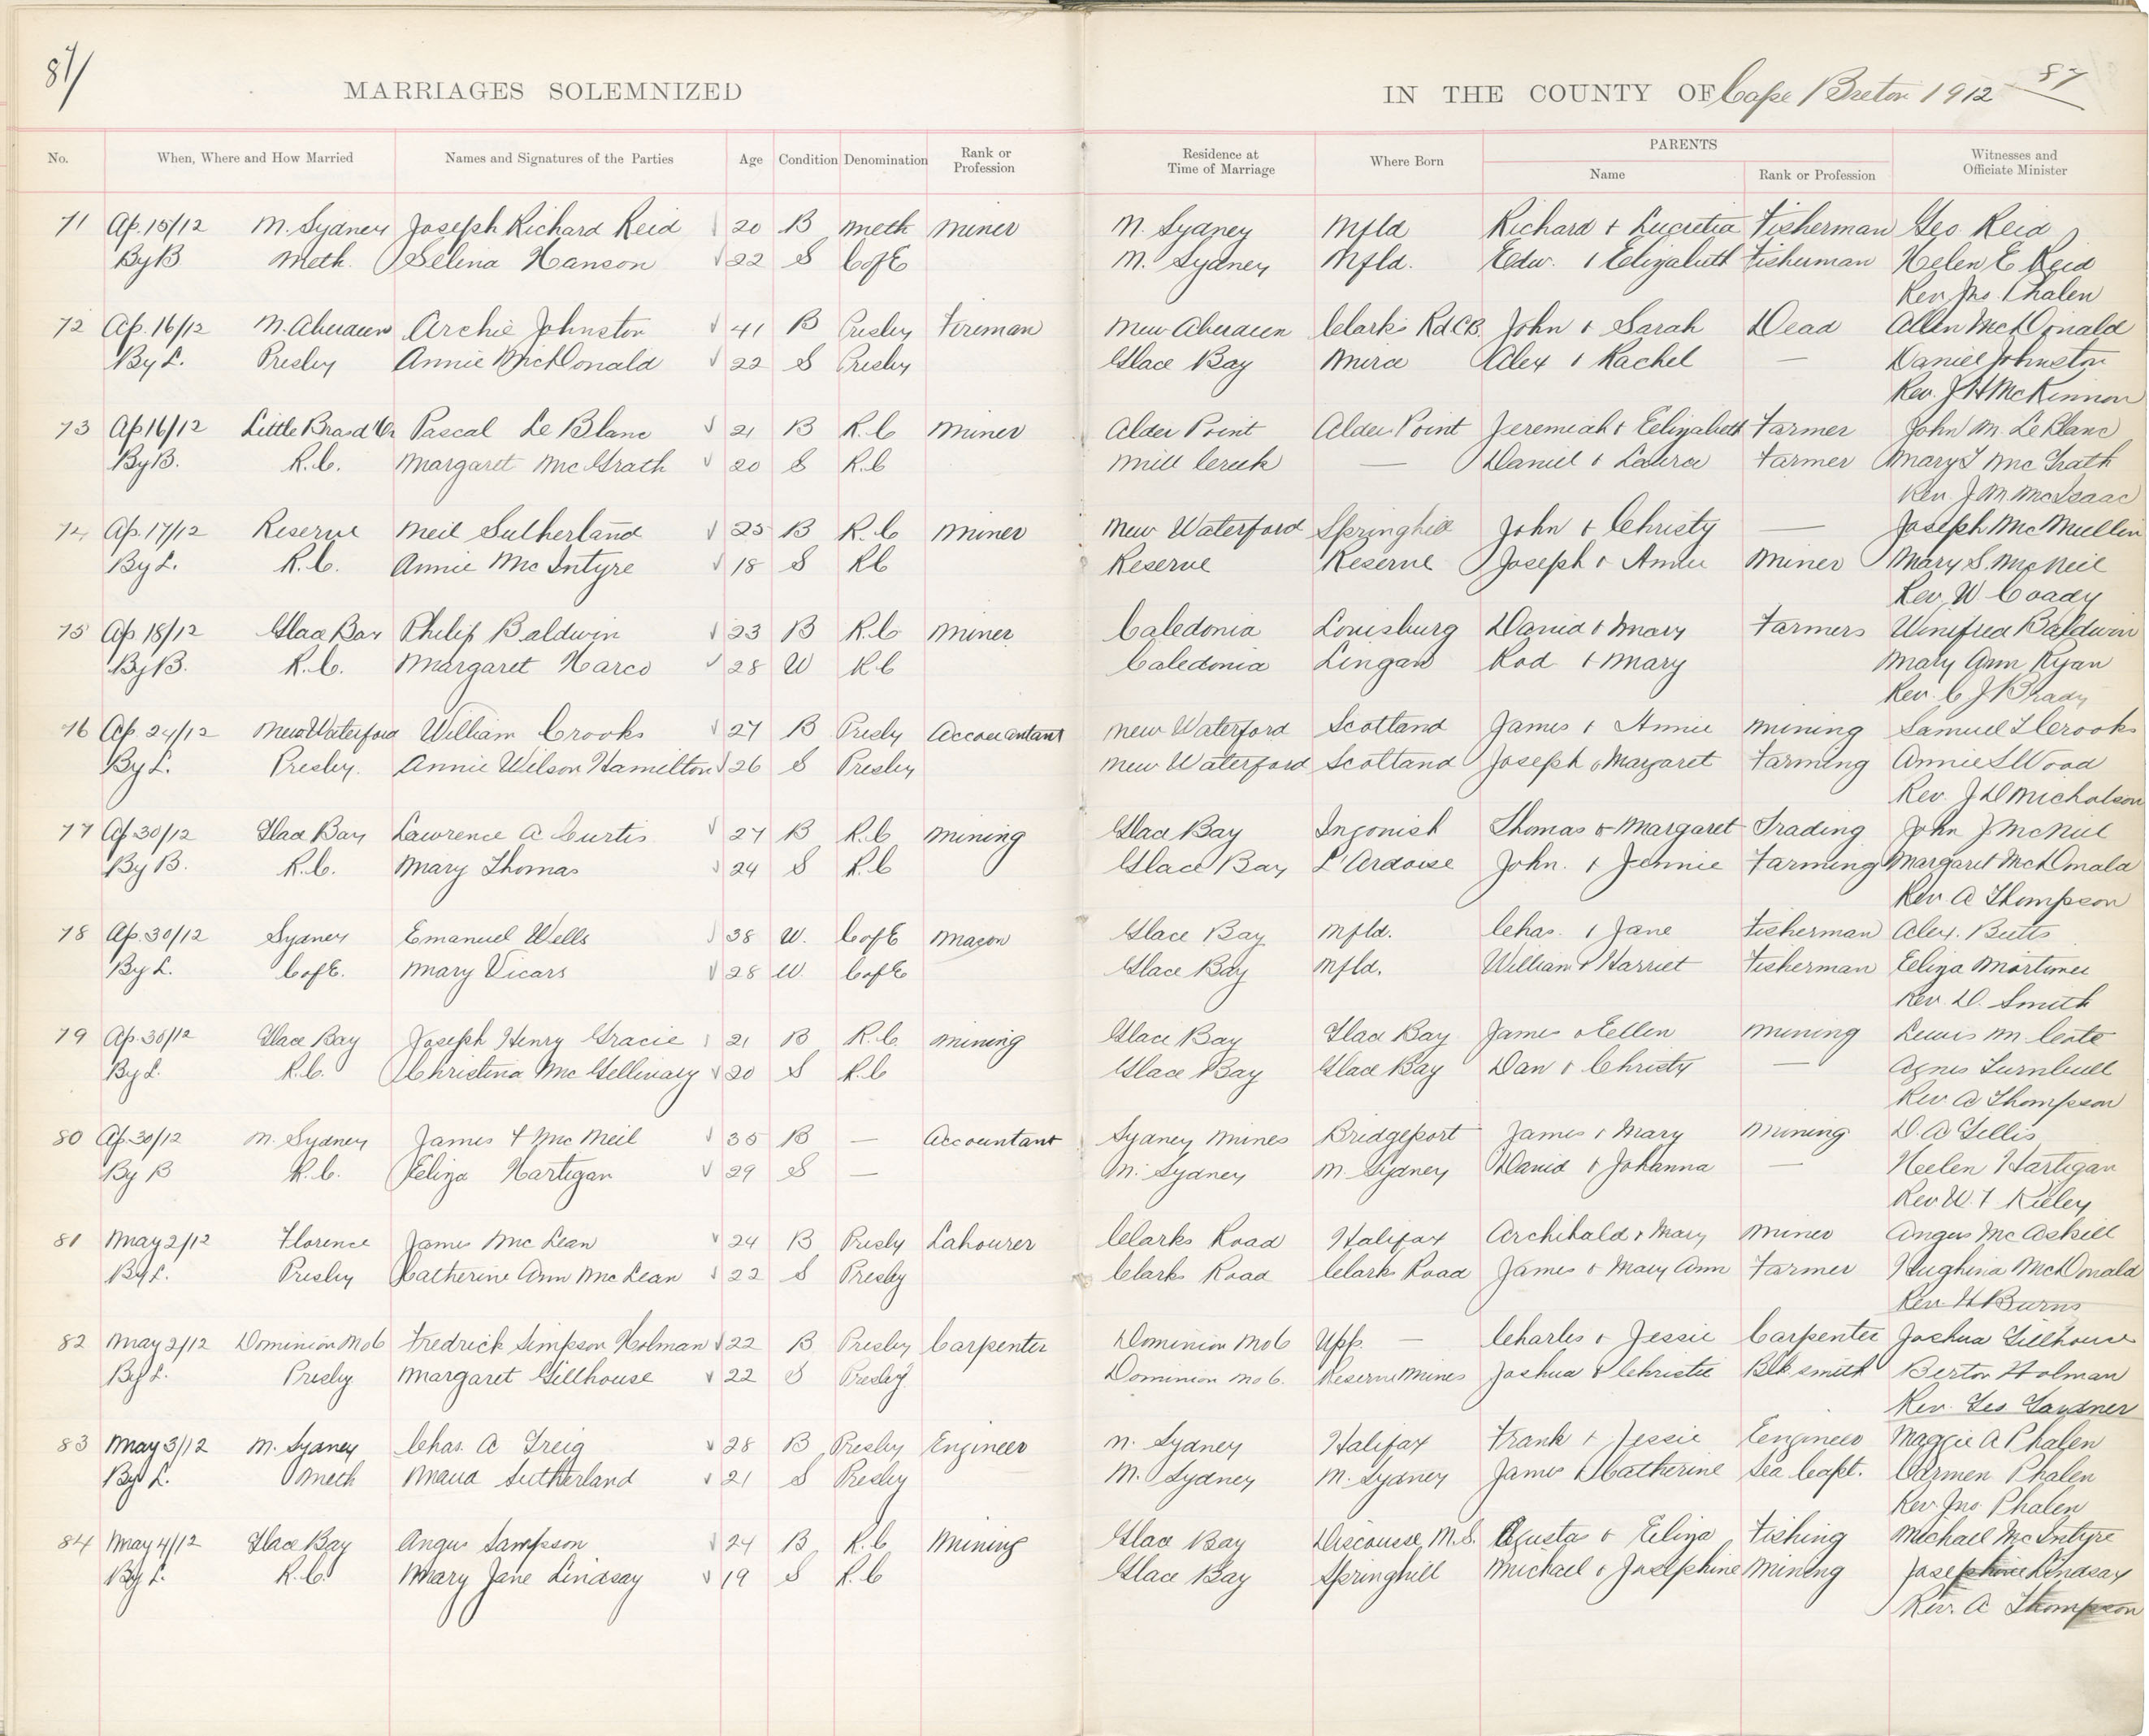 87
87
MARRIAGES SOLEMNIZED IN THE COUNTY OF Cape Breton 1912
No. When, Where and How Married Names and Signatures of the Parties Age Condition Denomination Rank or Profession Residence at Time of Marriage Where Born PARENTS Name Rank or Profession Witnesses and Officiate Minister
71 Ap. 15/12 N. Sydney Joseph Richard Reid 20 B Meth Miner N. Sydney Nfld Richard & Lucretia Fisherman Geo. Reid
By B Meth. Selina Hanson 22 S C of E N. Sydney Nfld. Edw. & Elizabeth Fisherman Helen E Reid
Rev. Jno. Phalen
72 Ap. 16/12 N. Aberdeen Archie Johnston 41 B Presby Fireman New Aberdeen Clarks Rd CB. John & Sarah Dead Allen McDonald
By L. Presby Annie McDonald 22 S Presby Glace Bay Mira Alex & Rachel — Daniel Johnston
Rev. J H McKinnon
73 Ap 16/12 Little Brasd'Or Pascal Le Blanc 21 B R.C Miner Alder Point Alder Point Jeremiah & Elizabeth Farmer John M. LeBlanc
By B. R.C. Margaret McGrath 20 S R.C Mill Creek — Daniel & Laura Farmer Mary J McGrath
Rev. J. M. McIsaac
74 Ap. 17/12 Reserve Neil Sutherland 25 B R.C Miner New Waterford Springhill John & Christy — Joseph McMullin
By L. R.C. Annie McIntyre 18 S RC Reserve Reserve Joseph & Annie Miner Mary S. McNeil
Rev. W. Coady
75 Ap 18/12 Glace Bay Philip Baldwin 23 B R.C Miner Caledonia Louisburg David & Mary Farmers Winifred Baldwin
By B. R.C. Margaret Harco 28 W R C Caledonia Lingan Rod & Mary Mary Ann Ryan
Rev. C J Brady
76 Ap. 24/12 New Waterford William Crooks 27 B Presby Accountant New Waterford Scotland James & Annie Mining Samuel Crooks
By L. Presby. Annie Wilson Hamilton 26 S Presby New Waterford Scotland Joseph & Margaret Farming Annie S Wood
Rev. J D Nicholson
77 Ap 30/12 Glace Bay Lawrence A Curtis 27 B R.C Mining Glace Bay Ingonish Thomas & Margaret Trading John J. McNeil
By B. R.C. Mary Thomas 24 S R.C Glace Bay L'Ardoise John. & Jennie Farming Margaret McDonald
Rev. A Thompson
78 Ap. 30/12 Sydney Emanuel Wells 38 W. C of E Mason Glace Bay Nfld. Chas. & Jane Fisherman Alex. Butts
By L. C of E. Mary Vicars 28 W. C of E Glace Bay Nfld. William & Harriet Fisherman Eliza Mortimer
Rev. D. Smith
79 Ap. 30/12 Glace Bay Joseph Henry Gracie 21 B R.C. Mining Glace Bay Glace Bay James & Ellen Mining Lewis M.
By L. R.C. Christina McGillivary 20 S R.C Glace Bay Glace Bay Dan & Christy — Agnes Turnbull
Rev A Thompson
80 Ap. 30/12 N. Sydney James F McNeil 35 B — Accountant Sydney Mines Bridgeport James & Mary Mining D. A Gillis
By B R.C. Eliza Hartigan 29 S — N. Sydney N. Sydney David & Johanna — Helen Hartigan
Rev W. F Kiely
81 May 2/12 Florence James McLean 24 B Presby Labourer Clarks Road Halifax Archibald & Mary Miner Angus McAskill
By L. Presby Catherine Ann McLean 22 S Presby Clarks Road Clarks Road James & Mary Ann Farmer Hughina McDonald
Rev H Burns
82 May 2/12 Dominion No 6 Fredrick Simpson Holman 22 B Presby Carpenter Dominion No 6 — Charles & Jessie Carpenter Joshua Gillhouse
By L. Presby Margaret Gillhouse 22 S Presby Dominion No 6. Reserve Mines Joshua & Christie Blk. smith Berton Holman
Rev. Geo Gardner
83 May 3/12 N. Sydney Chas. A Greig 28 B Presby Engineer N. Sydney Halifax Frank & Jessie Engineer Maggie A Phalen
By L. Meth Maud Sutherland 21 S Presby N. Sydney N. Sydney James & Catherine Sea Capt. Carmen Phalen
Rev. Jno. Phalen
84 May 4/12 Glace Bay Angus Sampson 24 B R.C Mining Glace Bay Discousse, N.S. Gustas & Eliza Fishing Michael McIntyre
By L. R.C. Mary Jane Lindsay 19 S R.C Glace Bay Springhill Michael & Josephine Mining Josephine Lindsay
Rev. A Thompson